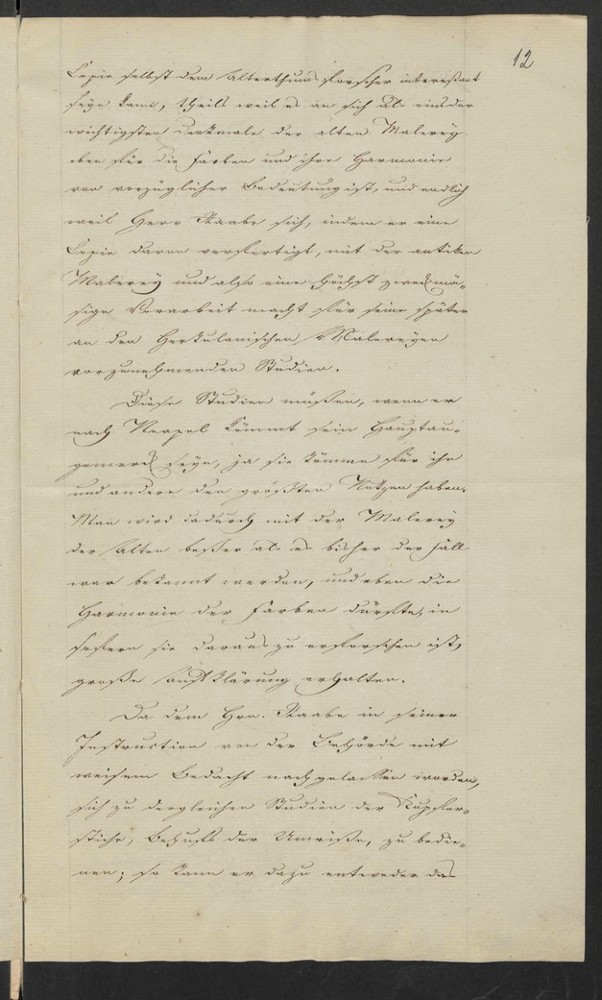 12
Copie selbst dem Alterthumsforscher interessant
seyn kann, theils weil es an sich als eins der
wichtigsten Denkmale der alten Malerey
eben für die Farben und ihre Harmonie
von vorzüglicher Bedeutung ist, und endlich
weil Herr Raabe sich, indem er eine
Copie davon verfertigt, mit der antiken
Malerey und also eine höchst zweckmä-
sige Vorarbeit macht für seine später
an den Herkulanischen Malereyen
vorzunehmenden Studien.
Diese Studien müssen, wenn er
nach Neapel kömmt sein Hauptau-
genmerk seyn, ja sie können für ihn
und andere den größten Nutzen haben.
Man wird dadurch mit der Malerey
der Alten besser als es bisher der Fall
war bekannt werden, und eben die
Harmonie der Farben dürfte, in
sofern sie daraus zu erforschen ist,
große Aufklärung erhalten.
Da dem Hrn. Raabe in seiner
Instruction von der Behörde mit
weisem Bedacht nachgelassen worden,
sich zu dergleichen Studien der Kupfer-
stiche, Behufs der Umrisse, zu bedie-
nen; so kann er dazu entweder das